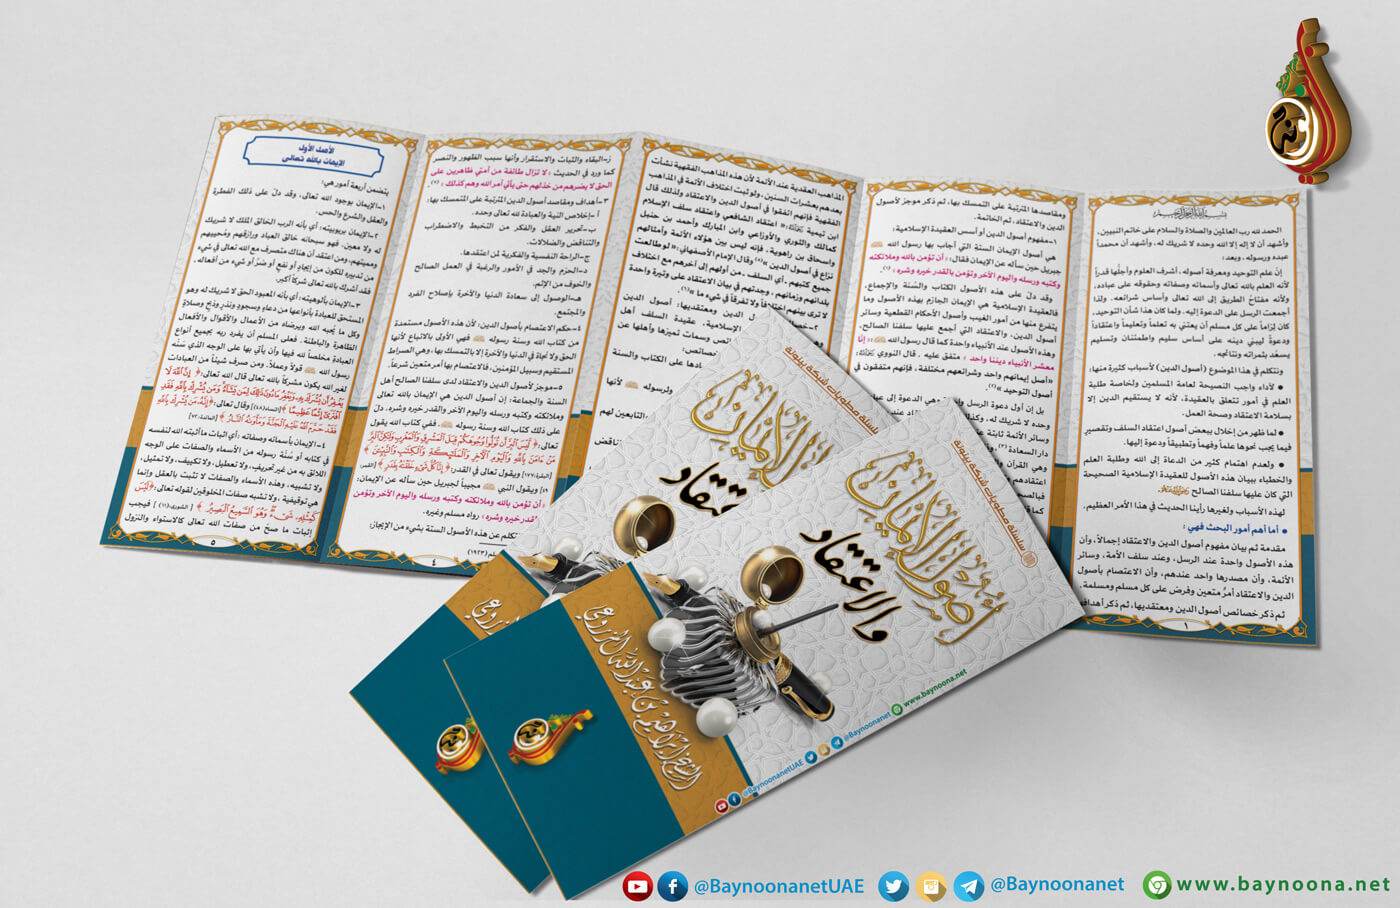 بسم الله الرحمن الرحيم
الحمد لله رب العالمين والصلاة والسلام على خاتم النبيين،
وأشهد أن لا إله إلا الله وحده لا شريك له، وأشهد أن محمداً
عبده ورسوله، وبعد:
إنَّ علم التوحيد ومعرفة أصوله، أشرف العلوم وأجلُّها قدراً
لأنه العلم بالله تعالى وأسمائه وصفاته وحقوقه على عباده،
ولأنه مفتاحُ الطريق إلى الله تعالى وأساس شرائعه. ولذا
أجمعت الرسل على الدعوة إليه. ولما كان هذا شأن التوحيد،
كان لِزاماً على كل مسلم أن يعتني به تعلماً وتعليماً واعتقاداً
ودعوةً ليبني دينه على أساس سليم واطمئنان وتسليم
يسعَد بثمراته ونتائجه.
ونتكلم في هذا الموضوع (أصول الدين) لأسباب كثيرة منها:
● لأداء واجب النصيحة لعامة المسلمين ولخاصة طلبة
العلم في أمور تتعلق بالعقيدة، لأنه لا يستقيم الدين إلا
بسلامة الاعتقاد وصحة العمل.
● لما ظهر من إخلال ببعض أصول اعتقاد السلف وتقصير
فيما يجب نحوها علماً وفهماً وتطبيقاً ودعوة إليها.
● ولعدم اهتمام كثير من الدعاة إلى الله وطلبة العلم
والخطباء ببيان هذه الأصول للعقيدة الإسلامية الصحيحة
التي كان عليها سلفنا الصالح
لهذه الأسباب ولغيرها رأينا الحديث في هذا الأمر العظيم.
● أما أهم أمور البحث فهي:
مقدمة ثم بيان مفهوم أصول الدين والاعتقاد إجمالاً، وأن
هذه الأصول واحدة عند الرسل، وعند سلف الأمة، وسائر
الأئمة، وأن مصدرها واحد عندهم، وأن الاعتصام بأصول
الدين والاعتقاد أمرٌ متعين وفرض على كل مسلم ومسلمة.
ثم ذكر خصائص أصول الدين ومعتقديها، ثم ذكر أهداف
١
ومقاصدها المترتبة على التمسك بها، ثم ذكر موجز لأصول
الدين والاعتقاد، ثم الخاتمة.
١-مفهوم أصول الدين أو أسس العقيدة الإسلامية:
هي أصول الإيمان الستة التي أجاب بها رسول الله ﷺ
جبريل حين سأله عن الإيمان فقال: «أن تؤمن بالله وملائكته
وكتبه ورسله واليوم الآخر وتؤمن بالقدر خيره وشره»
وقد دلَّ على هذه الأصول الكتاب والسُّنة والإجماع.
فالعقيدة الإسلامية هي الإيمان الجازم بهذه الأصول وما
يتفرع عنها من أمور الغيب وأصول الأحكام القطعية وسائر
أصول الدين، والاعتقاد التي أجمع عليها سلفنا الصالح.
وهذه الأصول عند الأنبياء واحدة كما قال رسول الله ﷺ: «إنَّا
معشر الأنبياء ديننا واحد» متفق عليه. قال النووي
«أصل إيمانهم واحد وشرائعهم مختلفة، فإنهم متفقون في
أصول التوحيد»
المذاهب العقدية عند الأئمة لأن هذه المذاهب الفقهية نشأت
بعدهم بعشرات السنين، ولو ثبت اختلاف الأئمة في المذاهب
الفقهية فإنهم اتفقوا في أصول الدين والاعتقاد ولذلك قال
ابن تيمية: «اعتقاد الشافعي واعتقاد سلف الإسلام
كمالك والثوري والأوزاعي وابن المبارك وأحمد بن حنبل
وإسحاق بن راهوية. فإنه ليس بين هؤلاء الأئمة وأمثالهم
نزاع في أصول الدين» وقال الإمام الأصفهاني: «لو طالعت
جميع كتبهم. أي السلف. من أولهم إلى آخرهم مع اختلاف
بلدانهم وزمانهم، وجدتهم في بيان الاعتقاد على وتيرة واحدة
لا ترى بينهم اختلافاً ولا تفرقاً في شيء ما»
ز-البقاء والثبات والاستقرار وأنها سبب الظهور والنصر
كما ورد في الحديث: «لا تزال طائفة من أمتي ظاهرين على
الحق لا يضرهم من خذلهم حتى يأتي أمر الله وهم كذلك»
٣-أهداف ومقاصد أصول الدين المترتبة على التمسك بها:
أ-إخلاص النية والعبادة لله تعالى وحده.
ب-تحرير العقل والفكر من التخبط والاضطراب
والتناقض والضلالات.
ج-الراحة النفسية والفكرية لمن اعتقدها.
د-الحزم والجد في الأمور والرغبة في العمل الصالح
والخوف من الإثم.
هـ-الوصول إلى سعادة الدنيا والآخرة بإصلاح الفرد
والمجتمع.
٤-حكم الاعتصام بأصول الدين: لأن هذه الأصول مستمدة
من كتاب الله وسنة رسوله ﷺ فهي الأولى بالاتباع لأنها
الحق ولا نجاة في الدنيا والآخرة إلا بالتمسك بها، وهي الصراط
المستقيم وسبيل المؤمنين، فالاعتصام بها أمر متعين شرعاً.
٥-موجز لأصول الدين والاعتقاد لدى سلفنا الصالح أهل
السنة والجماعة: إن أصول الدين هي الإيمان بالله تعالى
وملائكته وكتبه ورسله واليوم الآخر والقدر خيره وشره. دل
على ذلك كتاب الله وسنة رسوله ﷺ. ففي كتاب الله يقول
٤
الأصل الأول
الإيمان بالله تعالى
يتضمن أربعة أمور هي:
١-الإيمان بوجود الله تعالى، وقد دلَّ على ذلك الفطرة
والعقل والشرع والحس.
٢-الإيمان بربوبيته: أي بأنه الرب الخالق الملك لا شريك
له ولا معين، فهو سبحانه خالق العباد ورازقهم ومُحييهم
ومميتهم. ومن اعتقد أن هناك متصرف مع الله تعالى في شيء
من تدبيره للكون من إيجادٍ أو نفع أو ضرٍّ أو شيء من أفعاله،
فقد أشرك بالله تعالى شركاً أكبر.
٣-الإيمان بألوهيته: أي بأنه المعبود الحق لا شريك له وهو
المستحق للعبادة بأنواعها من دعاء وسجود ونذرٍ وذبحٍ وصلاةٍ
وكل ما يُحبه الله ويرضاه من الأعمال والأقوال والأفعال
الظاهرة والباطنة. فعلى المسلم أن يفرد ربه بجميع أنواع
العبادة مخلصاً لله فيها وأن يأتي بها على الوجه الذي سَنَّه
رسول الله ﷺ قولاً وعملاً. ومن صرف شيئاً من العبادات
لغير الله يكون مشركاً بالله تعالى قال الله تعالى:
٤-الإيمان بأسمائه وصفاته: أي إثبات ما أثبته الله لنفسه
في كتابه أو سُنَّة رسوله من الأسماء والصفات على الوجه
اللائق به من غير تحريف، ولا تعطيل، ولا تكييف، ولا تمثيل،
ولا تشبيه. وهذه الأسماء والصفات لا تثبت بالعقل وإنما
هي توقيفية. ولا تشبه صفات المخلوقين لقوله تعالى: ﴿لَيْسَ
كَمِثْلِهِ شَيْءٌ وَهُوَ السَّمِيعُ الْبَصِيرُ﴾ [الشورى:١١] فيجب
إثبات ما صح من صفات الله تعالى كالاستواء والنزول
٥
سلسلة مطويات شبكة بينونة
أصول الإيمان
والاعتقاد
الشيخ إبراهيم بن عبدالله المزروعي
@BaynoonanetUAE @Baynoonanet www.baynoona.net
@BaynoonanetUAE @Baynoonanet www.baynoona.net